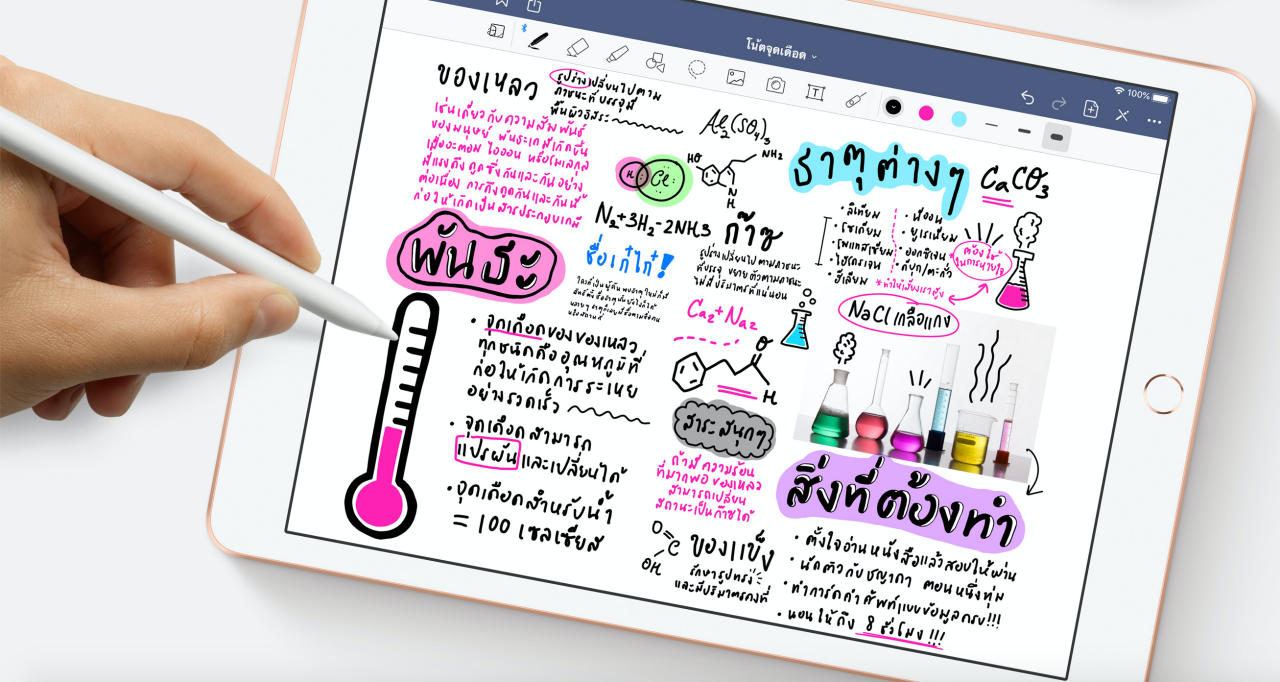 โน้ตจุดเดือด
100%
ของเหลว
รูปร่างเปลี่ยนไปตาม
ภาชนะที่บรรจุมี
พื้นผิวอิสระ
เช่นเดียวกับความสัมพันธ์
ของมนุษย์ พันธะเคมีเกิดขึ้น
เมื่ออะตอม ไอออน หรือโมเลกุล
มีแรงดึงดูดซึ่งกันและกันอย่าง
ต่อเนื่อง การดึงดูดกันและกันนี้
ก่อให้เกิดเป็นสารประกอบเคมี
พันธะ
• จุดเดือดของของเหลว
ทุกชนิดคืออุณหภูมิที่
ก่อให้เกิดการระเหย
อย่างรวดเร็ว
• จุดเดือดสามารถ
แปรผันและเปลี่ยนได้
• จุดเดือดสำหรับน้ำ
= 100 เซลเซียส
Al₂(SO₄)₃
H : Cl :
HO
NH₂
N
H
N₂+3H₂-2NH3
ชื่อเก๋ไก๋!
ก๊าซ
รูปร่างเปลี่ยนไปตามภาชนะ
ที่บรรจุ ขยายตัวตามภาชนะ
ไม่มีปริมาตรที่แน่นอน
Ca₂+Na₂
O
H
สาระสนุกๆ
ถ้ามีความร้อน
ที่มากพอ ของเหลว
สามารถเปลี่ยน
สถานะเป็นก๊าซได้
O
C
OH
ของแข็ง
รักษารูปทรง
และมีปริมาตรคงที่
ธาตุต่างๆ
CaCO₃
• ลิเทียม
• โซเดียม
• โพแทสเซียม
• ไฮโดรเจน
• ฮีเลียม
*ทำให้เสียงเราสูง
• นีออน
• ยูเรเนียม
• ออกซิเจน
• ดีบุก/ตะกั่ว
ต้องใช้
ในการหายใจ
NaCl เกลือแกง
สิ่งที่ต้องทำ
• ตั้งใจอ่านหนังสือแล้วสอบให้ผ่าน
• นัดติวกับชญาดา ตอนหนึ่งทุ่ม
• ทำการ์ดคำศัพท์แบบข้อมูลครบ!!!
• นอนให้ถึง 8 ชั่วโมง !!!